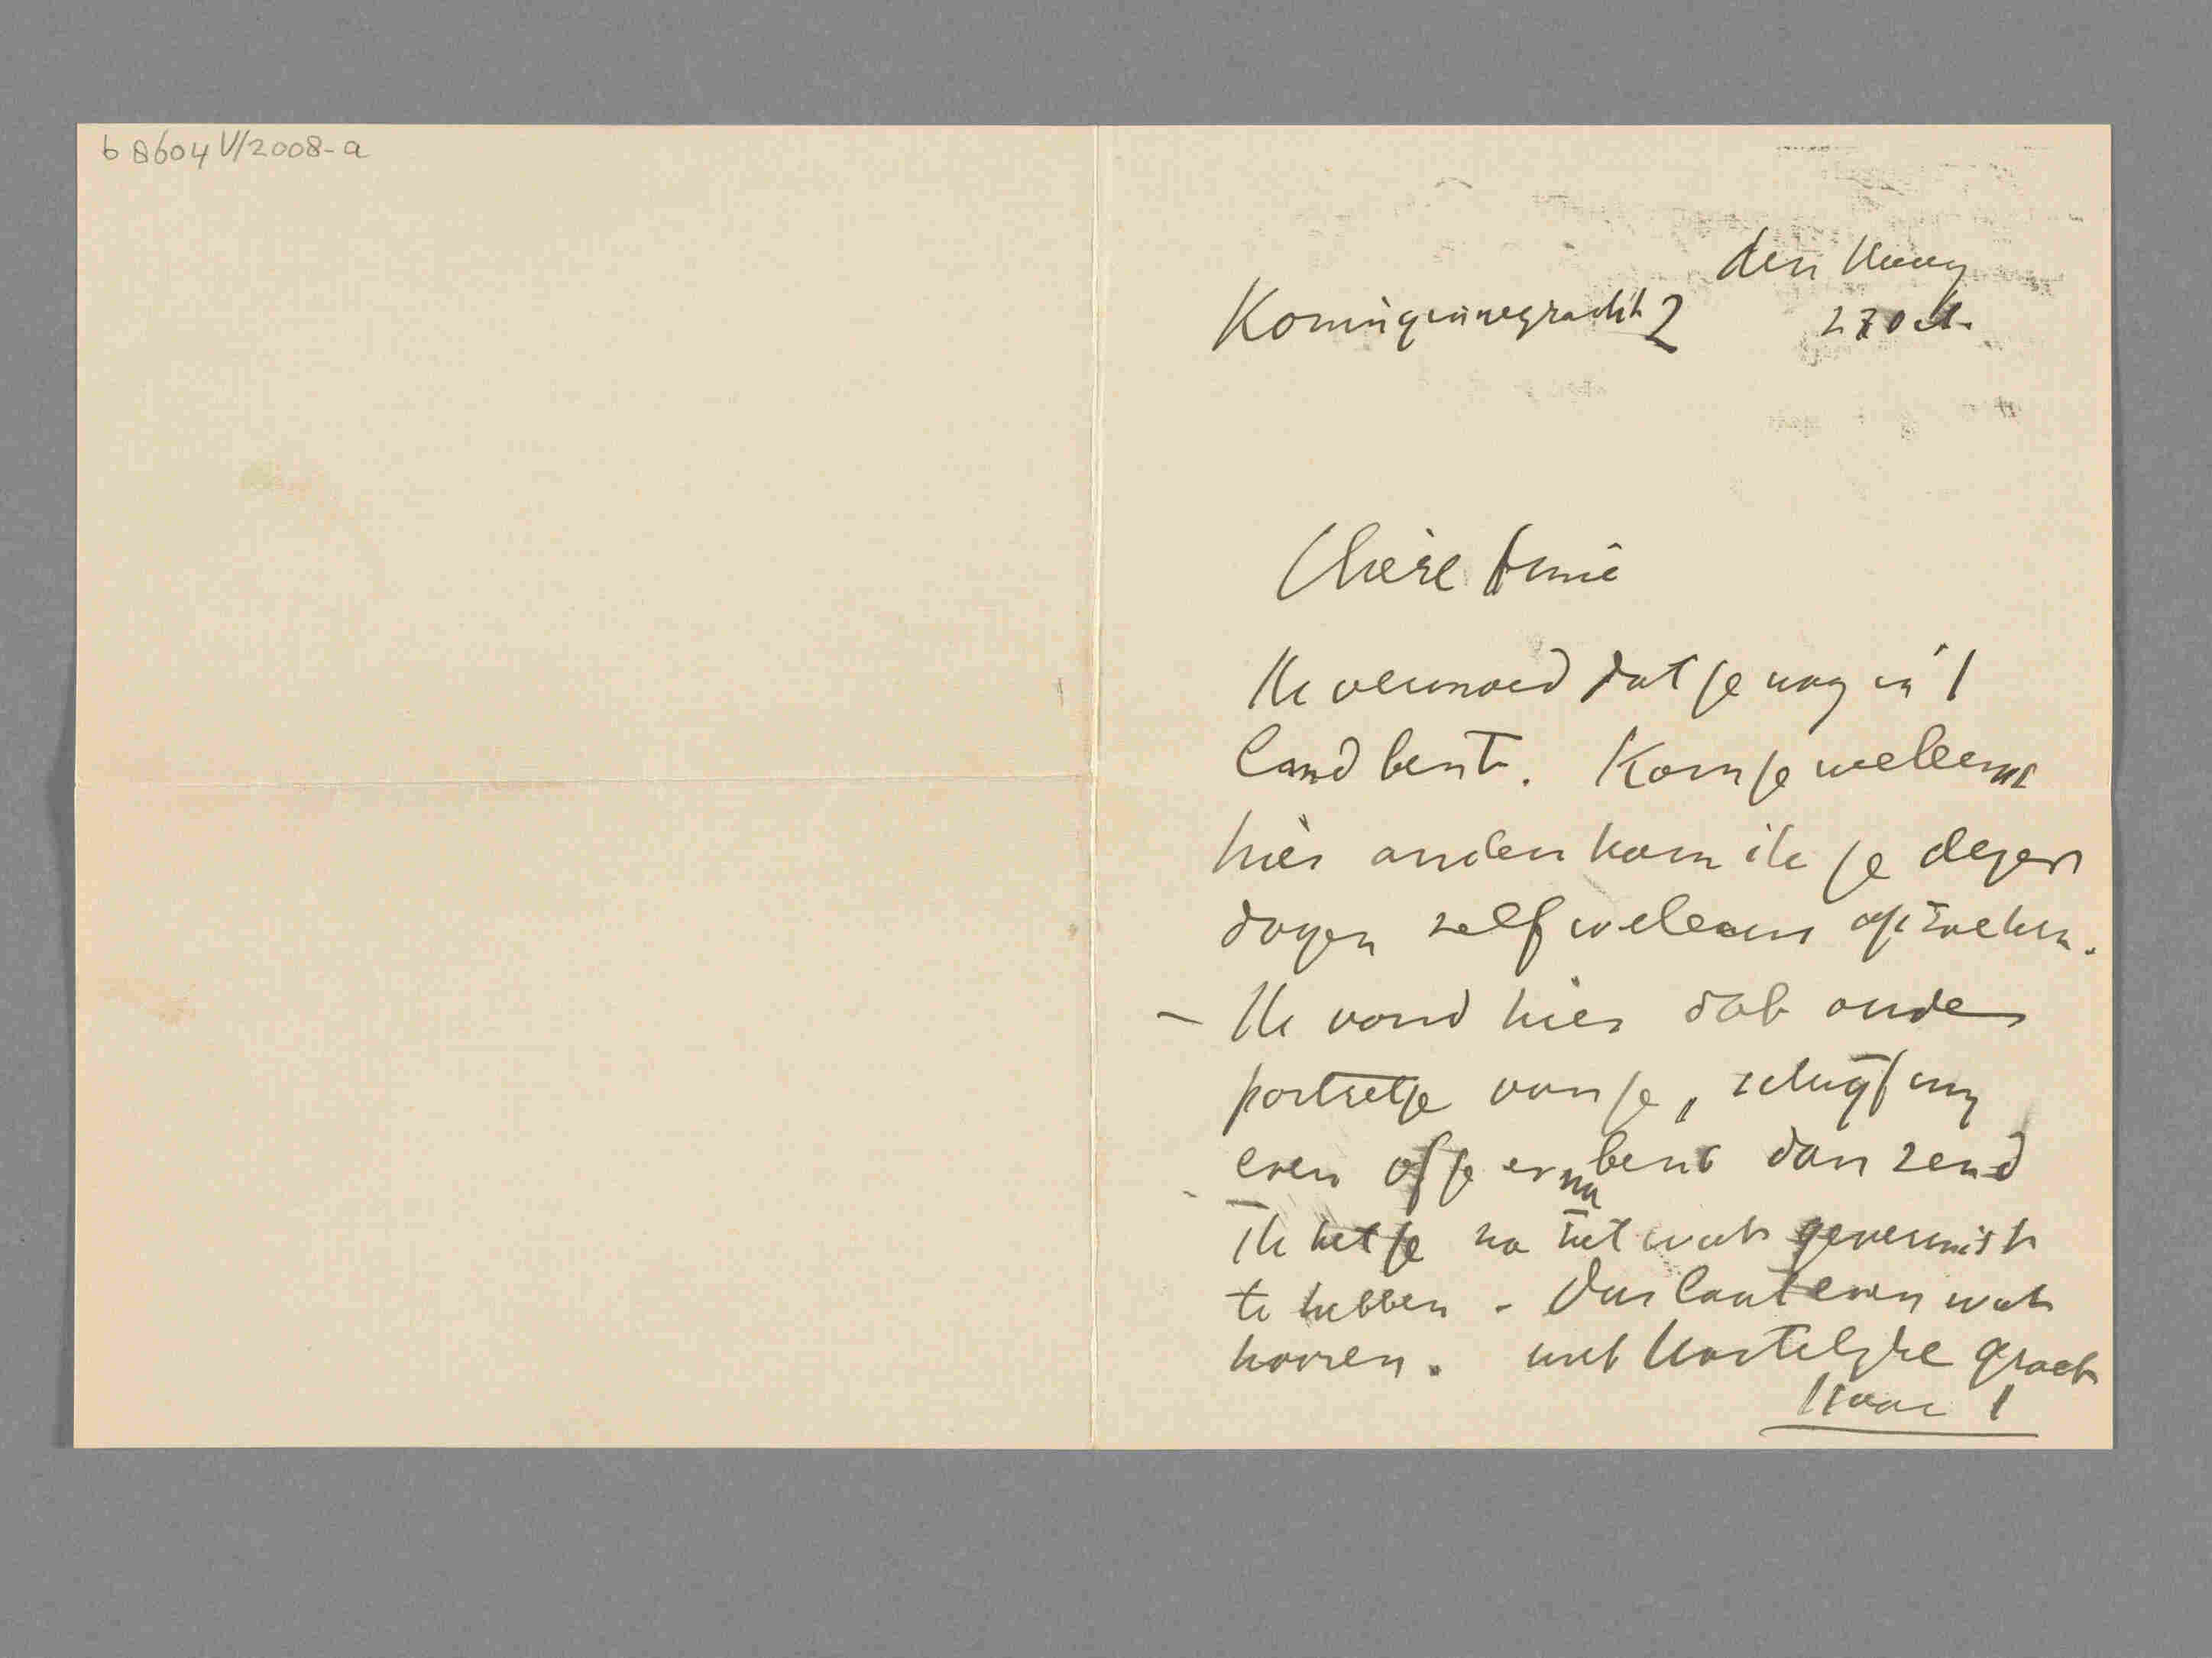 b 8604 V/2008-a
den Haag
Koninginnegracht 2 27 Oct.
Chère Amie
Ik vermoed dat je nog in 't
land bent. Kom je weleens
hier anders kom ik je dezer
dagen zelf weleens opzoeken.
– Ik vond hier dat oude
portretje van je, schrijf my
even of je er nu bent dan zend
Ik het je na het wat gevernist
te hebben – Dus laat even wat
hooren. met hartelyke groet
Isaac I